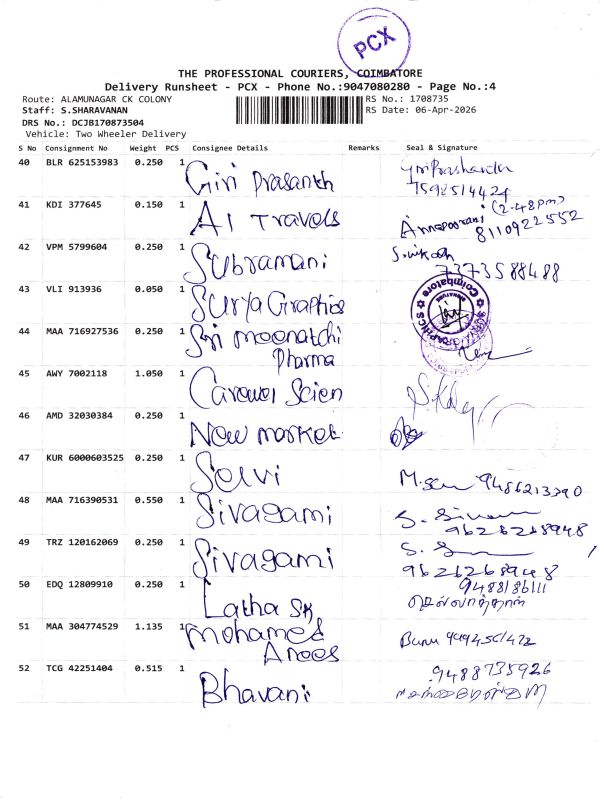 PCX
THE PROFESSIONAL COURIERS, COIMBATORE
Delivery Runsheet - PCX - Phone No.:9047080280 - Page No.:4
Route: ALAMUNAGAR CK COLONY
RS No.: 1708735
Staff: S.SHARAVANAN
RS Date: 06-Apr-2026
DRS No.: DCJB170873504
Vehicle: Two Wheeler Delivery
S No Consignment No Weight PCS Consignee Details Remarks Seal & Signature
40 BLR 625153983 0.250 1 Giri Prasanth
7598514424
41 KDI 377645 0.150 1 A1 Travels (2-48pm)
8110922552
42 VPM 5799604 0.250 1 Subramani
7373588488
43 VLI 913936 0.050 1 Surya Graphics
Coimbatore
44 MAA 716927536 0.250 1 Sri meenatchi
Pharma
45 AWY 7002118 1.050 1
46 AMD 32030384 0.250 1 New market
47 KUR 6000603525 0.250 1 Selvi 9486213390
48 MAA 716390531 0.550 1 Sivagami
9626268948
49 TRZ 120162069 0.250 1 Sivagami
9626268948
50 EDQ 12809910 0.250 1 Latha SK
51 MAA 304774529 1.135 1 Mohamed
Anees
52 TCG 42251404 0.515 1 Bhavani 9488735926